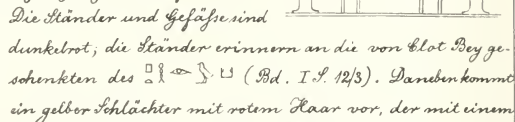 Die Ständer und Gefäße sind
dunkelrot; die Ständer erinnern an die von Clot Bey ge-
schenkten des (Bd. I S. 12/3). Daneben kommt
ein gelber Schlächter mit rotem Haar vor, der mit einem